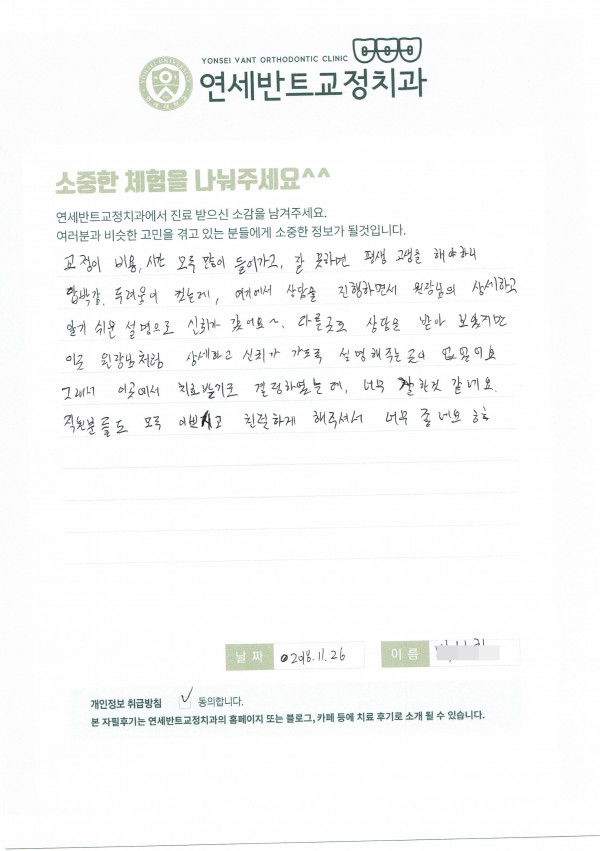 YONSEI VANT ORTHODONTIC CLINIC
연세반트교정치과
YONSEI UNIVERSITY
소중한 체험을 나눠주세요^^
연세반트교정치과에서 진료 받으신 소감을 남겨주세요.
여러분과 비슷한 고민을 겪고 있는 분들에게 소중한 정보가 될것입니다.
교정이 비용, 시간 모두 많이 들어가고, 잘 못하면 평생 고생을 해야하니
압박감, 두려움이 컸는데, 여기에서 상담을 진행하면서 원장님의 상세하고
알기 쉬운 설명으로 신뢰가 갔어요~. 다른곳도 상담은 받아 보았지만
이곳 원장님처럼 상세하고 신뢰가 가도록 설명해주는 곳이 없었어요
그래서 이곳에서 치료받기로 결정하였는데, 너무 잘한것 같네요.
직원분들도 모두 이쁘시고 친절하게 해주셔서 너무 좋네요 ㅎㅎ
날 짜 2018.11.26
이 름
개인정보 취급방침 ✓ 동의합니다.
본 자필후기는 연세반트교정치과의 홈페이지 또는 블로그, 카페 등에 치료 후기로 소개 될 수 있습니다.